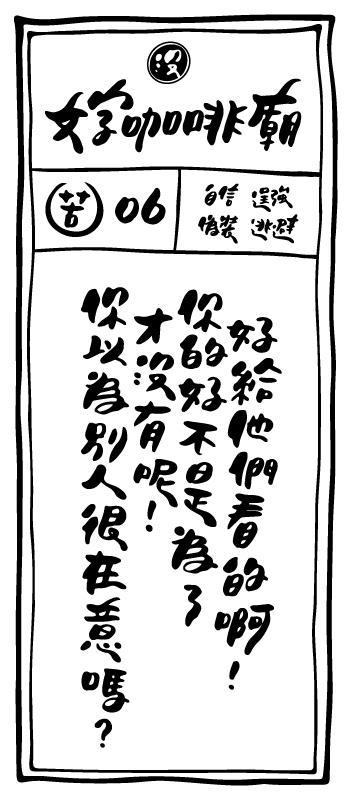 沒
好咖啡廟
苦 06
自信 逞強
偽裝 逃避
你以為別人很在意嗎?
才沒有呢!
你的好不是為了
好給他們看的啊!